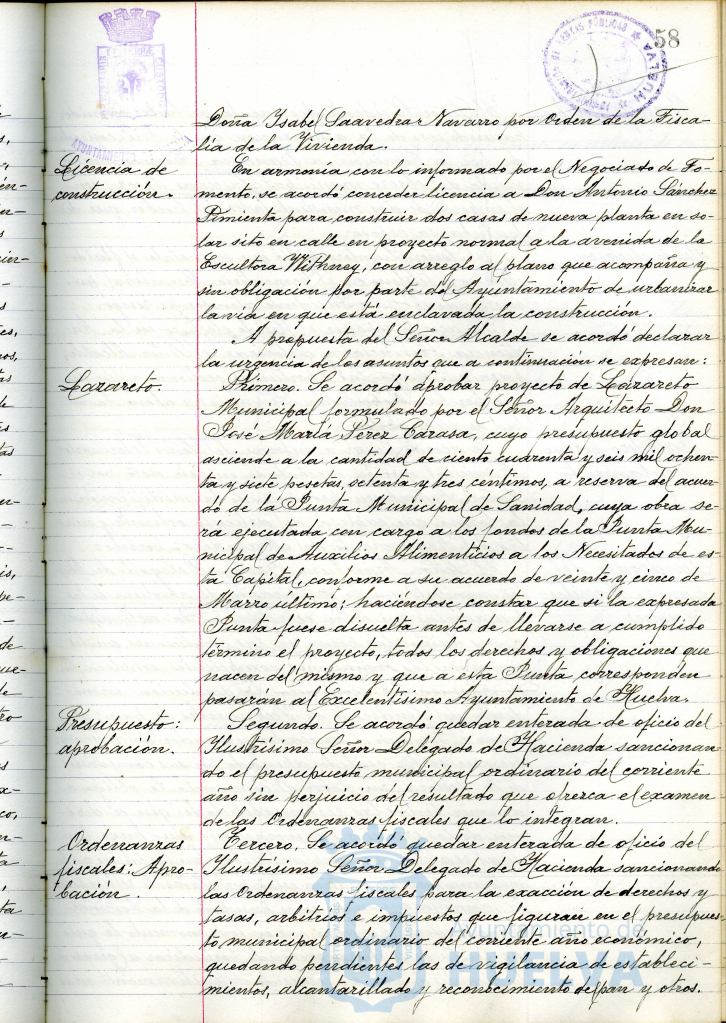 58
Doña Isabel Saavedra Navarro por orden de la Fisca-
lía de la Vivienda.
Licencia de
construcción.
En armonía con lo informado por el Negociado de Fo-
mento, se acordó conceder licencia a Don Antonio Sánchez
Pimienta para construir dos casas de nueva planta en so-
lar sito en calle en proyecto normal a la avenida de la
Escultora Withney, con arreglo al plano que acompaña y
sin obligación por parte del Ayuntamiento de urbanizar
la via en que está enclavada la construcción.
A propuesta del Señor Alcalde se acordó declarar
la urgencia de los asuntos que a continuación se expresan:
Lazareto.
Primero. Se acordó aprobar proyecto de Lazareto
Municipal formulado por el Señor Arquitecto Don
José María Pérez Carasa, cuyo presupuesto global
asciende a la cantidad de ciento cuarenta y seis mil ochen-
ta y siete pesetas, setenta y tres céntimos, a reserva del acuer-
do de la Junta Municipal de Sanidad, cuya obra se-
rá ejecutada con cargo a los fondos de la Junta Mu-
nicipal de Auxilios Alimenticios a los Necesitados de es-
ta Capital, conforme a su acuerdo de veinte y cinco de
Marzo último; haciéndose constar que si la expresada
Junta fuese disuelta antes de llevarse a cumplido
término el proyecto, todos los derechos y obligaciones que
nacen del mismo y que a esta Junta corresponden
pasarán al Excelentísimo Ayuntamiento de Huelva.
Presupuesto:
aprobación.
Segundo. Se acordó quedar enterada de oficio del
Ilustrísimo Señor Delegado de Hacienda sancionan-
do el presupuesto municipal ordinario del corriente
año sin perjuicio del resultado que ofrezca el examen
de las Ordenanzas fiscales que lo integran.
Ordenanzas
fiscales: Apro-
bación.
Tercero. Se acordó quedar enterada de oficio del
Ilustrísimo Señor Delegado de Hacienda sancionando
las Ordenanzas fiscales para la exacción de derechos y
tasas, arbitrios e impuestos que figuran en el presupues-
to municipal ordinario del corriente año económico,
quedando pendientes las de vigilancia de estableci-
mientos, alcantarillado y reconocimiento de pan y otros.
Ayuntamiento de
HUELVA